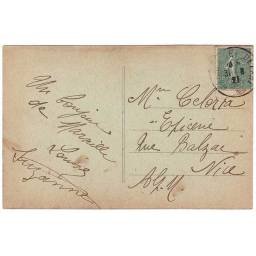 Un bonjour
de Marseille
Louise
Suzanne
Mme Celoria
Epicerie
Rue Balzac
Nice
A M